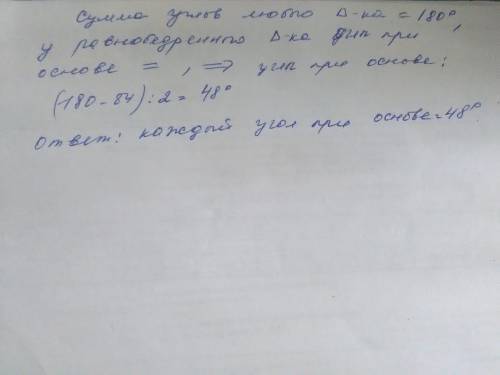 Сумма углов любого Δ-ка = 180°,
у равнобедренного Δ-ка при
основе = , => при основе:
(180-84):2=48°
Ответ: каждый угол при основе=48°.